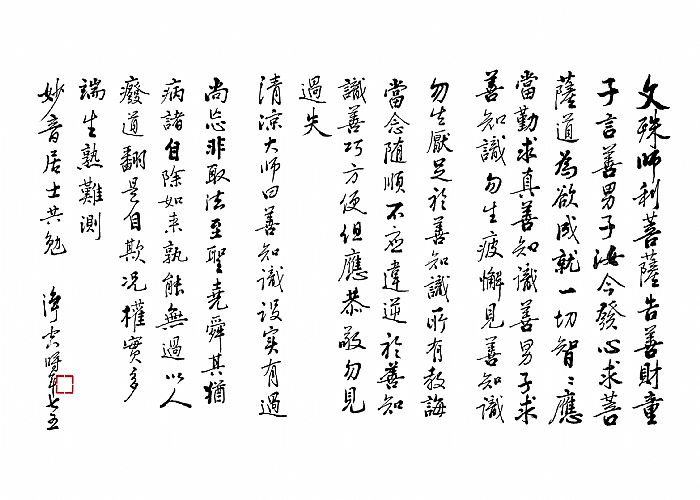 文殊師利菩薩告善財童
子言善男子汝今發心求菩
薩道為欲成就一切智々應
當勤求真善知識善男子求
善知識勿生疲懈見善知識
勿生厭足於善知識所有教誨
當念隨順不應違逆於善知
識善巧方便但應恭敬勿見
過失
清涼大师曰善知識设实有過
尚忘非取法至聖堯舜其猶
病諸自除如来孰能無過以人
癈道翻是自欺况權實多
端生熟難測
妙音居士共勉
淨空時年七五